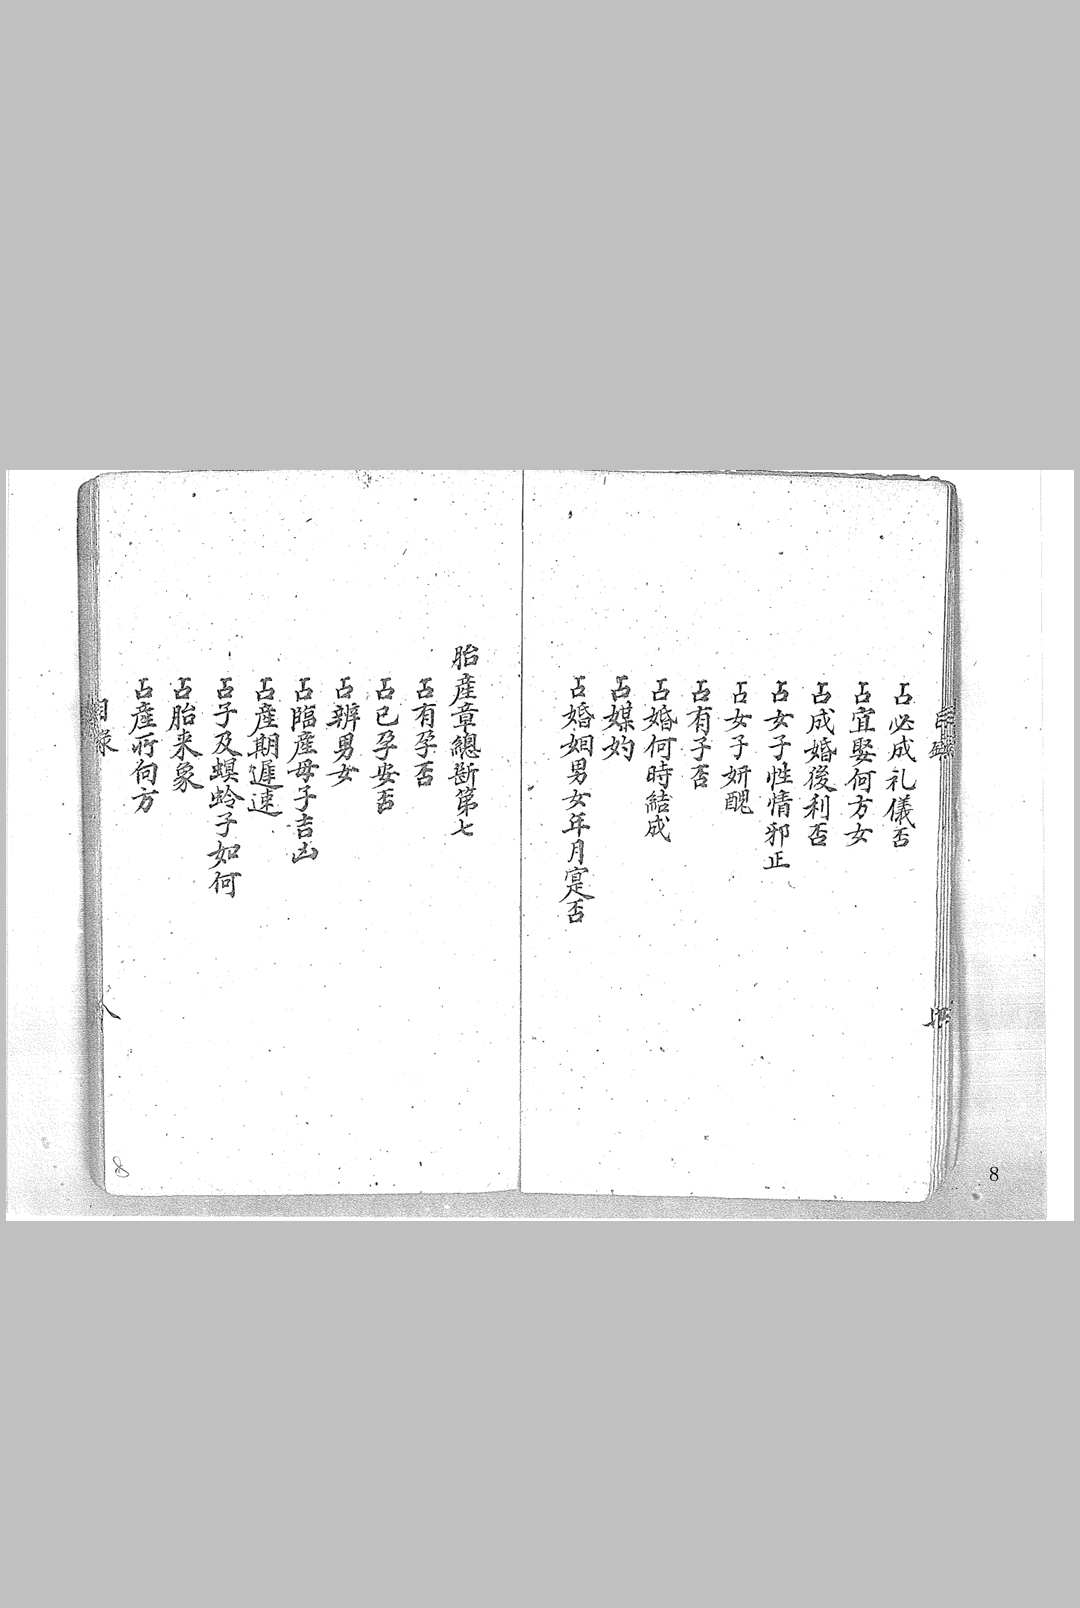 占必成礼儀否
占宜娶何方女
占成婚後利否
占女子性情邪正
占女子妍醜
占有子否
占婚何時結成
占媒妁
占婚姻男女年月寔否
胎產章總斷第七
占有孕否
占已孕安否
占辨男女
占臨產母子吉凶
占產期遲速
占子及螟蛉子如何
占胎来象
占產所向方
目録
八
8
8